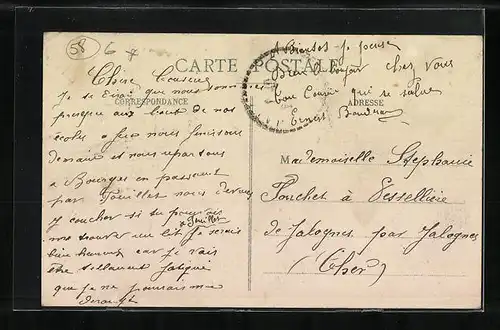 58 G
CARTE POSTALE
CORRESPONDANCE
ADRESSE
Chère Cousine
Je te dirai que nous sommes
presque au bout de nos
écoles nous finissons
demain et nous repartons
a Bourges en passant
par nous devons
y coucher si tu pouvais
me trouver un lit Je serais
bien heureux car je vais
être tellement fatigué
que je ne pourrais me
je pense
Bien le bonjour chez vous
ton Cousin qui te salue
Ernest
Mademoiselle Stephanie
Pouchet à Vessellière
de Jalognes par Jalognes
(Cher)